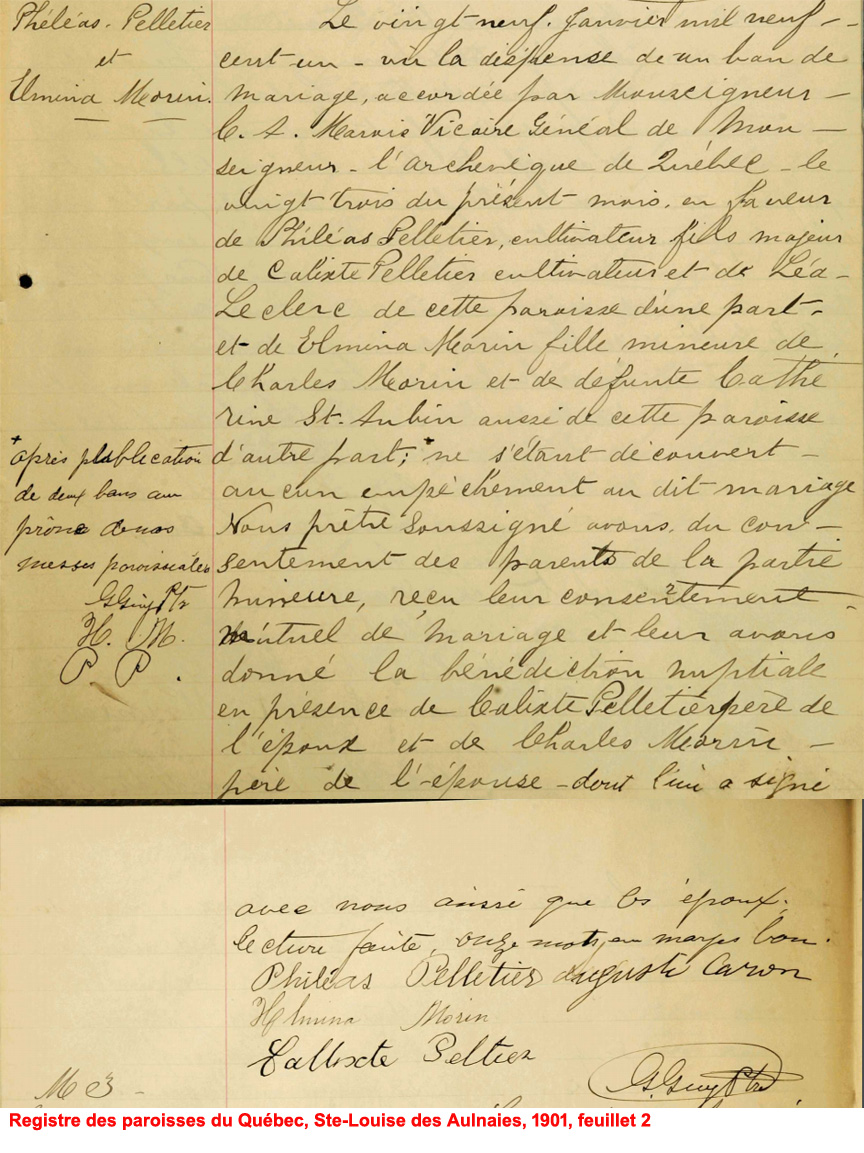 Phéléas. Pelletier
et
Elmina Morin.
Le vingt neuf. Janvier mil neuf -
cent-un - vu la dispense de un ban de
mariage, accordée par Monseigneur -
C. A. Marois Vicaire Généal de Mon -
seigneur - l'archevêque de Québec - le
vingt trois du présent mois, en faveur
de Philéas Pelletier, cultivateur fils majeur
de Calixte Pelletier cultivateur et de Léa -
Leclerc de cette paroisse d'une part -
et de Elmina Morin fille mineure de
Charles Morin et de défunte Cathe
rine St. Aubin aussi de cette paroisse
d'autre part; + ne s'étant découvert -
aucun empêchement au dit mariage
Nous prêtre soussigné avons, du con -
sentement des parents de la partie
mineure, reçu leur consentement -
mutuel de mariage et leur avons
donné la bénédiction nuptiale
en présence de Calixte Pelletier père de
l'époux et de Charles Morin -
père de l'épouse - dont l'un a signé
+
après publication
de deux bans au
prône de nos
messes paroissiales
G Guy Ptr
H. M.
P P.
avec nous ainsi que les époux.
lecture faite, onze mots en marge bon.
Philéas Pelletier Auguste Caron
Helmina Morin
Callixte Peltier
G. Guy Ptre
M 3 -
Registre des paroisses du Québec, Ste-Louise des Aulnaies, 1901, feuillet 2